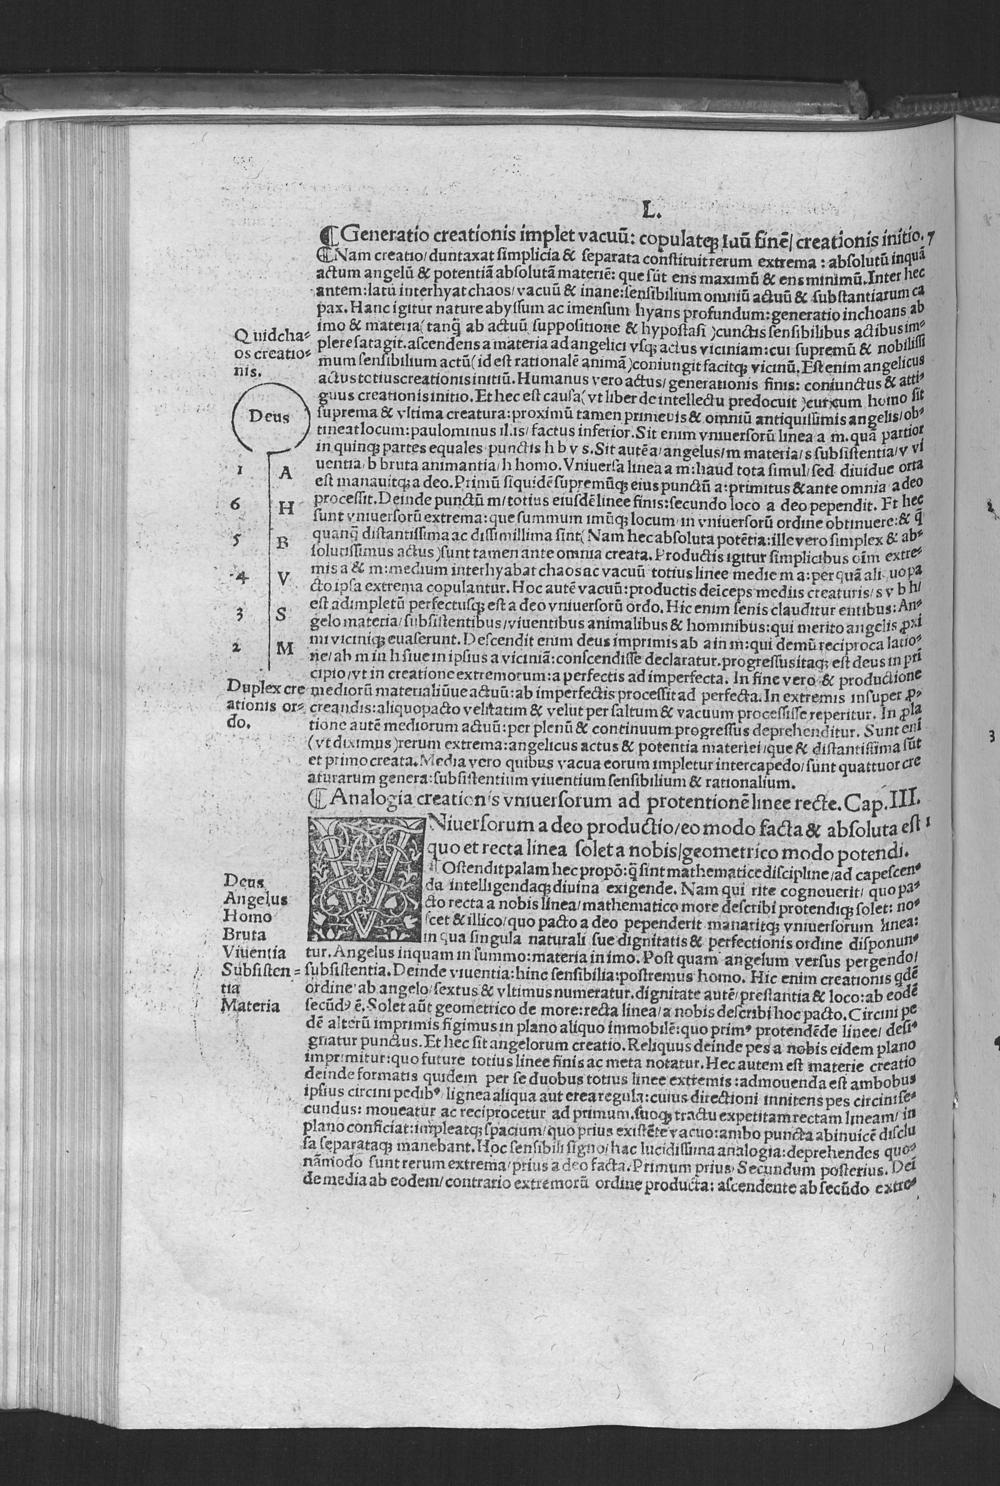 L.
¶Generatio creationis implet vacuū: copulatqꝫ suū finē/ creationis initio. 7
¶Nam creatio/duntaxat simplicia & separata constituit rerum extrema: absolutū inquā
actum angelū & potentiā absolutā materiē: que sūt ens maximū & ens minimū. Inter hec
autem: latū interhyat chaos/vacuū & inane: sensibilium omniū actuū & substantiarum ca
pax. Hanc igitur nature abyssum ac imensum hyans profundum: generatio inchoans ab
imo & materia (tanq̄ ab actuū suppositione & hypostasi) cunctis sensibilibus actibus im-
plere satagit. ascendens a materia ad angelici vsqꝫ actus viciniam: cui supremū & nobilissi
mum sensibilium actū (id est rationalē animā) coniungit facitqꝫ vicinū. Est enim angelicus
actus totius creationis initiū. Humanus vero actus/generationis finis: coniunctus & atti-
guus creationis initio. Et hec est causa (vt liber de intellectu predocuit) cur cum homo sit
suprema & vltima creatura: proximū tamen primevis & omniū antiquissimis angelis/ob-
tineat locum: paulominus illis/factus inferior. Sit enim vniuersorū linea a m. quā partior
in quinqꝫ partes equales punctis h b v s. Sit autē a/angelus/m materia/s subsistentia/v vi
uentia/b bruta animantia/h homo. Vniuersa linea a m: haud tota simul/sed diuidue orta
est manauitqꝫ a deo. Primū siquidē supremūqꝫ eius punctū a: primitus & ante omnia a deo
processit. Deinde punctū m/totius eiusdē linee finis: secundo loco a deo pependit. Et hec
sunt vniuersorū extrema: que summum imūqꝫ locum in vniuersorū ordine obtinuere: & q̄
quanq̄ distantissima ac dissimillima sint (Nam hec absoluta potētia: ille vero simplex & ab-
solutissimus actus) sunt tamen ante omnia creata. Productis igitur simplicibus oīm extre-
mis a & m: medium interhyabat chaos ac vacuū totius linee medie m a: per quā ali uo pa
cto ipsa extrema copulantur. Hoc autē vacuū: productis deīceps mediis creaturis/s v b h/
est adimpletū perfectusqꝫ est a deo vniuersorū ordo. Hic enim senis clauditur entibus: An-
gelo materia/subsistentibus/viuentibus animalibus & hominibus: qui merito angelis ꝓxi
mi viciniqꝫ euaserunt. Descendit enim deus imprimis ab a in m: qui demū reciproca latio-
ne/ab m in h siue in ipsius a viciniā: conscendisse declaratur. progressus itaqꝫ est deus in pri
cipio/vt in creatione extremorum: a perfectis ad imperfecta. In fine vero & productione
mediorū materialiūue actuū: ab imperfectis processit ad perfecta. In extremis insuper ꝓ-
creandis: aliquopacto velitatim & velut per saltum & vacuum processisse reperitur. In ꝓla
tione autē mediorum actuū: per plenū & continuum progressus deprehenditur. Sunt eni
(vt diximus) rerum extrema: angelicus actus & potentia materiei/que & distantissima sūt
et primo creata. Media vero quibus vacua eorum impletur intercapedo/sunt quattuor cre
aturarum genera: subsistentium viuentium sensibilium & rationalium.
Quid cha-
os creatio-
nis.
Deus
1 A
6 H
5 B
4 V
3 S
2 M
Duplex cre
ationis or-
do.
¶Analogia creationis vniuersorum ad protentionē linee recte. Cap. III.
VNiuersorum a deo productio/eo modo facta & absoluta est 1
quo et recta linea solet a nobis/geometrico modo potendi.
¶Ostendit palam hec propō: q̄ sint mathematice discipline/ad capescen-
da intelligendaqꝫ diuina exigende. Nam qui rite cognouerit/quo pa-
cto recta a nobis linea/mathematico more describi protendiqꝫ solet: no-
scet & illico/quo pacto a deo pependerit manaritqꝫ vniuersorum linea:
in qua singula naturali sue dignitatis & perfectionis ordine disponun-
tur. Angelus inquam in summo: materia in imo. Post quam angelum versus pergendo/
subsistentia. Deinde viuentia: hinc sensibilia: postremus homo. Hic enim creationis qdē
ordine ab angelo/sextus & vltimus numeratur. dignitate autē/prestantia & loco: ab eodē
secūdꝰ ē. Solet aūt geometrico de more: recta linea/a nobis describi hoc pacto. Circini pe
dē alterū imprimis figimus in plano aliquo immobilē: quo primꝰ protendēde linee/desi-
gnatur punctus. Et hec sit angelorum creatio. Reliquus deinde pes a nobis eidem plano
imprimitur: quo future totius linee finis ac meta notatur. Hec autem est materie creatio
deinde formatis quidem per se duobus totius linee extremis: admouenda est ambobus
ipsius circini pedibꝰ lignea aliqua aut erea regula: cuius directioni innitens pes circini se-
cundus: moueatur ac reciprocetur ad primum. suoqꝫ tractu expetitam rectam lineam/in
plano conficiat: impleatqꝫ spacium/quo prius existēte vacuo: ambo puncta abinuicē disclu
sa separataqꝫ manebant. Hoc sensibili signo/hac lucidissima analogia: deprehendes quo-
nāmodo sunt rerum extrema/prius a deo facta. Primum prius/Secundum posterius. Dei
de media ab eodem/contrario extremorū ordine producta: ascendente ab secūdo extre-
Deus
Angelus
Homo
Bruta
Viuentia
Subsisten-
tia
Materia